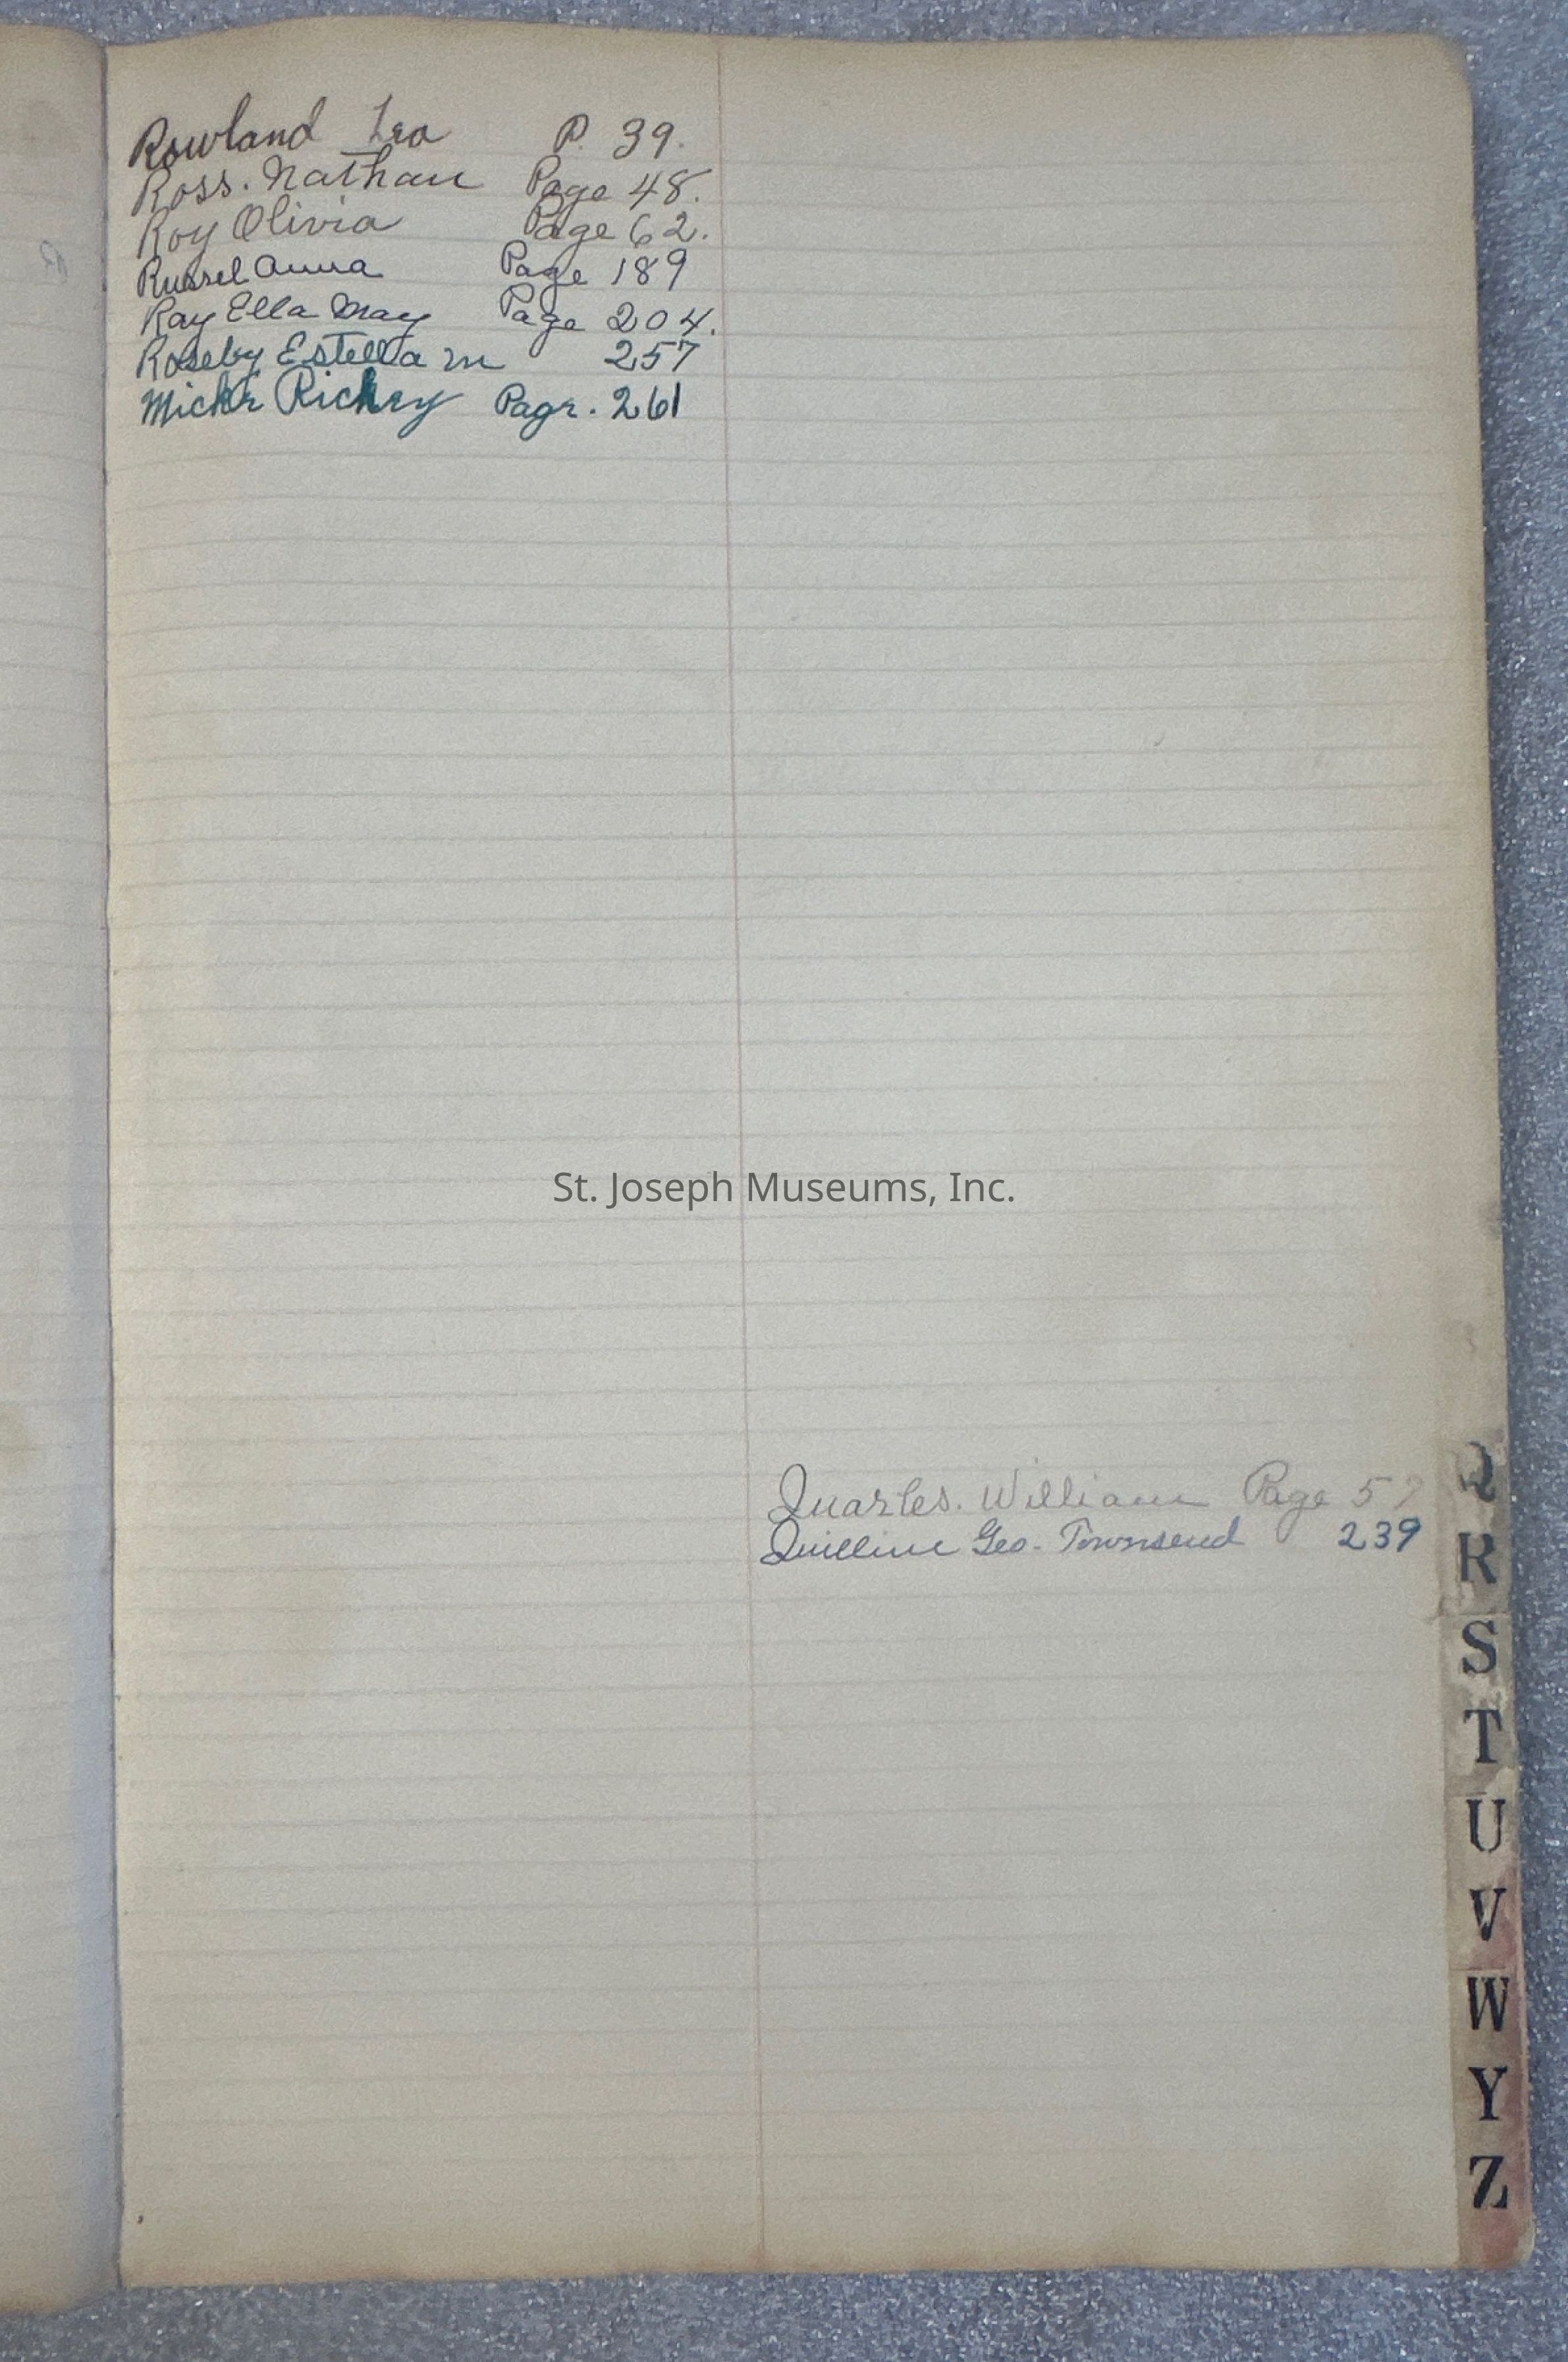 Rowland Leo P. 39.
Ross. Nathan Page 48.
Roy Olivia Page 62.
Russel Anna Page 189
Ray Ella May Page 204.
Roseby Estella M 257
Mickr Richey Pagr. 261
St. Joseph Museums, Inc.
Quarles. William Page
Quilline Geo. Townsend 239
Q
R
S
T
U
V
W
Y
Z